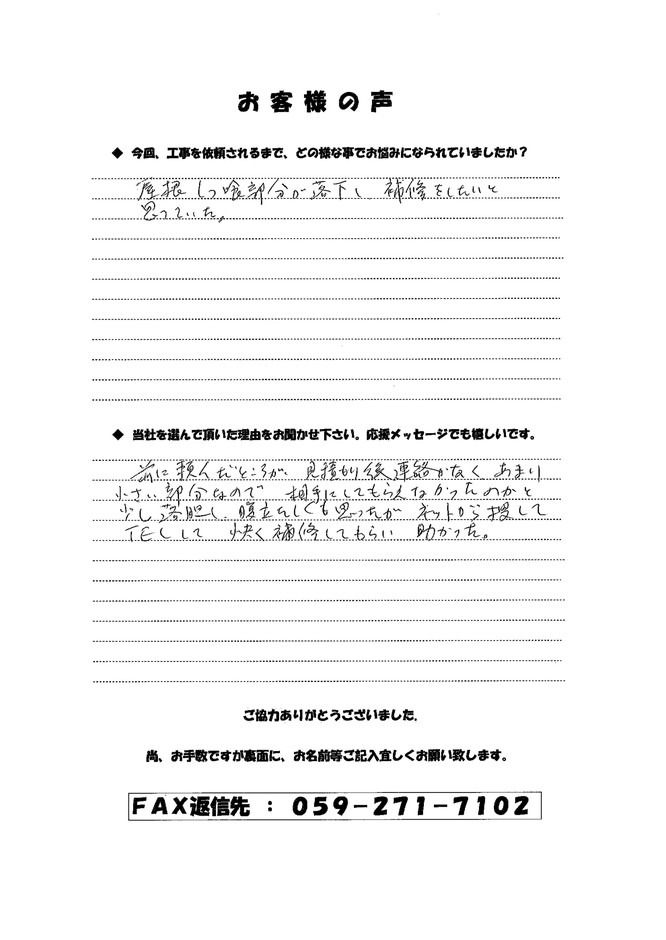 お客様の声
◆ 今回、工事を依頼されるまで、どの様な事でお悩みになられていましたか？
屋根しっ喰部分が落下し 補修をしたいと
思っていた。
◆ 当社を選んで頂いた理由をお聞かせ下さい。応援メッセージでも嬉しいです。
前に頼んだところが、見積り後連絡がなく あまり
小さい部分なので 相手にしてもらえなかったのかと
少し落胆し、腹立たしくも思ったが ネットから捜して
TELして 快く補修してもらい 助かった。
ご協力ありがとうございました.
尚、お手数ですが裏面に、お名前等ご記入宜しくお願い致します。
FAX返信先 ： 059-271-7102